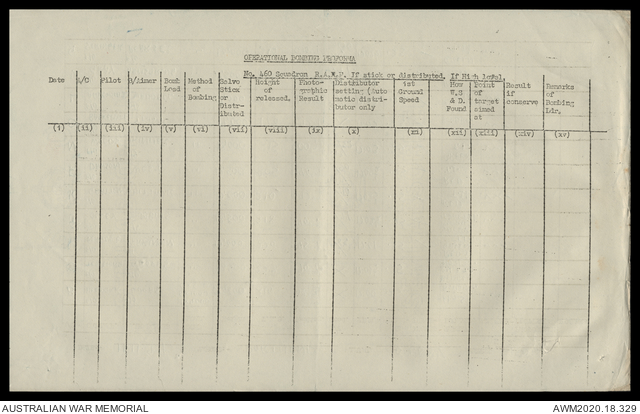 OPERATIONAL BOMBING PERFORMA
No. 460 Squadron R.A.A.F. If stick or distributed. If High Level.
Date
A/C
Pilot
B/Aimer
Bomb
Load
Method
of
Bombing
Salvo
Stick
or
Distr-
ibuted
Height
of
released.
Photo-
graphic
Result
Distributor
setting (Auto
matic distri-
butor only
ist
Ground
Speed
How
W.S
& D.
Found
Point
of
target
aimed
at
Result
if
conserve
Remarks
of
Bombing
Ldr.
(i) (ii) (iii) (iv) (v) (vi) (vii) (viii) (ix) (x) (xi) (xii) (xiii) (xiv) (xv)
AUSTRALIAN WAR MEMORIAL
AWM2020.18.329